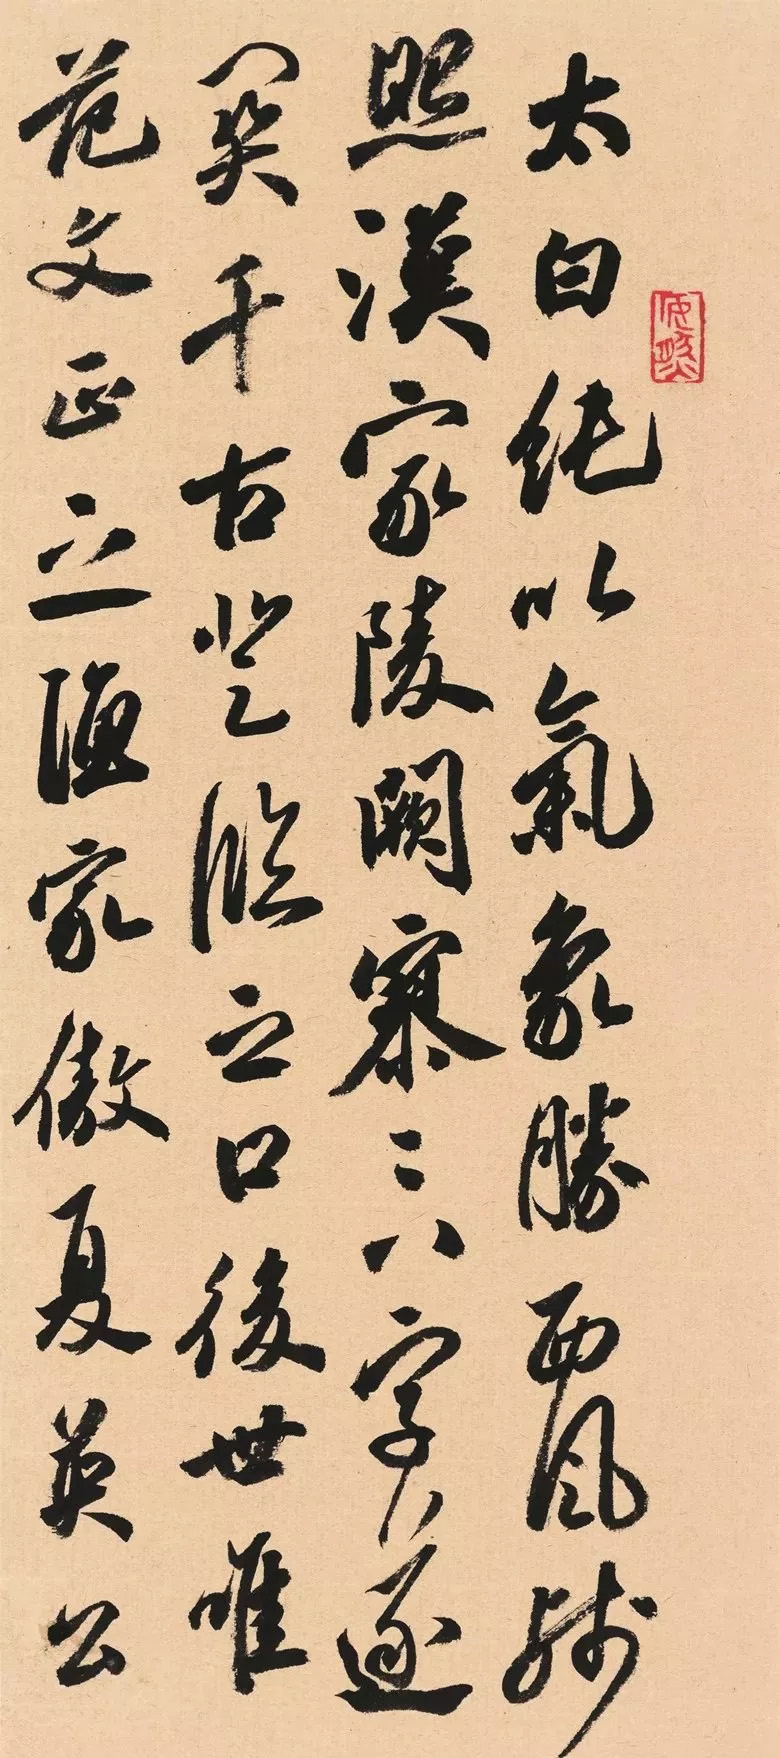 太白純以氣象勝西風殘
照漢家陵闕寥々八字遂
關千古登臨之口後世唯
范文正之漁家傲夏英公